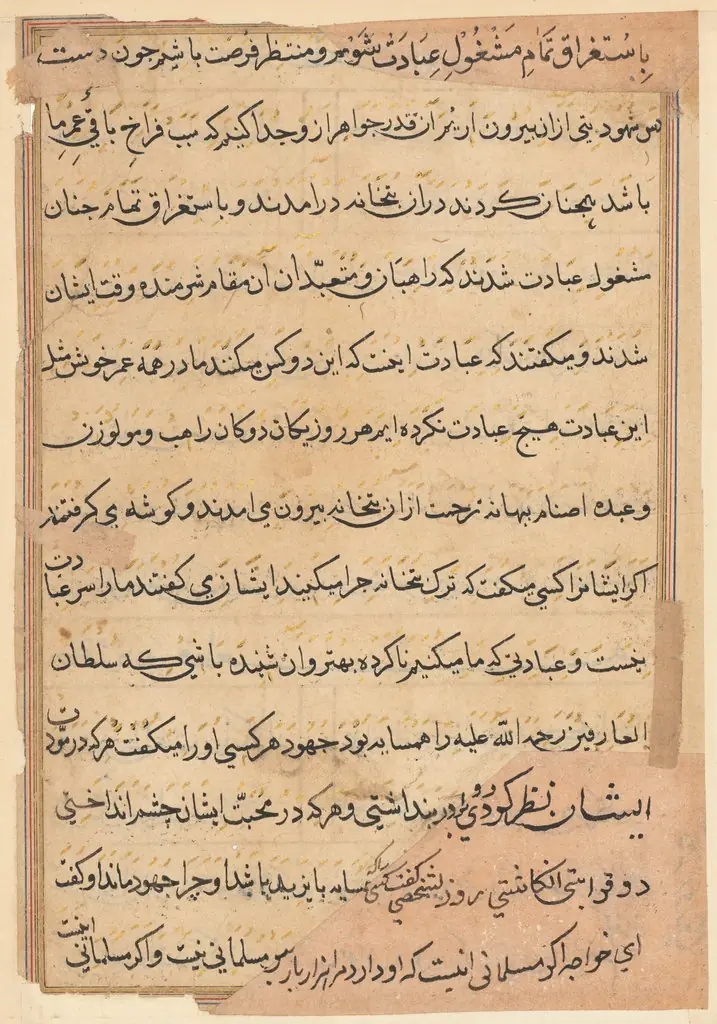 باستغراق تمام مشغول عبادت شویم و منتظر فرصت باشیم جون دست
بتی ازان بیرون اریم ان قدر جواهر ازو جدا کنیم که سبب فراخ باقی عمر ما
باشد همجنان کردند دران بتخانه درامدند و باستغراق تمام جنان
مشغول عبادت شدند که راهبان و متعبدان ان مقام شرمنده وقت ایشان
شدند و میکفتند که عبادت اینست که این دو کس میکنند ما در همه عمر خویش مثل
این عبادت هیج عبادت نکرده ایم هر روز یکان دوکان راهب و مولوزن
و عبده اصنام بهانه زحمت ازان بتخانه بیرون می امدند و کوشه می کرفتند
اکر ایشانرا کسی میکفت که ترک بتخانه جرا میکنید ایشان می کفتند ما را سر عبادت
نیست و عبادتی که ما میکنیم ناکرده بهتر وان شنیده باشی که سلطان
العارفین رحمه الله علیه را همسایه بود جهود هر کسی او را میکفت هرکه در
ایشان نظر کردی بنداشتی و هرکه در محبت ایشان چشم انداختی
دو قرابتی انکاشتی روزی شخصی کفت کسی همسایه بایزید باشد او چرا جهود ماند او کفت
ای خواجه اکر مسلمانی انیست که او دارد مرا بس مسلمانی نیست و اکر مسلمانی اینست